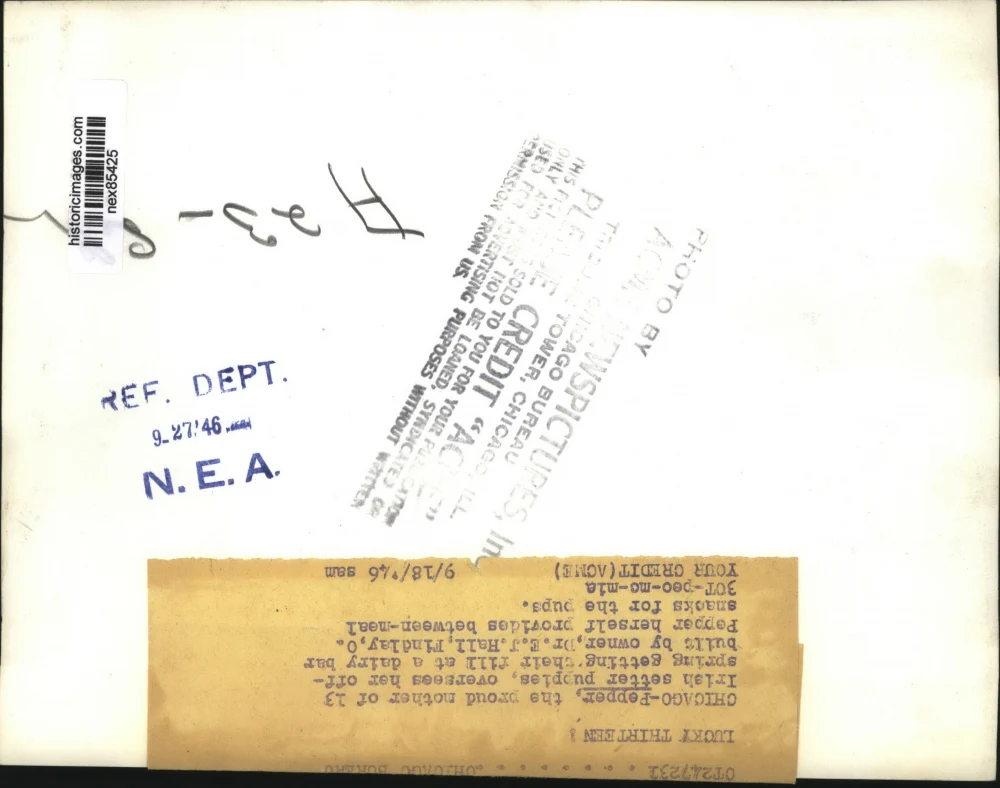 historicimages.com
nex85425
REF. DEPT.
9-27'46
N. E. A.
PHOTO BY
NEWSPICTURES, Inc
CHICAGO BUREAU
TOWER, CHICAGO ILL.
CREDIT "ACME"
SOLD TO YOU FOR YOUR
ONLY AND MUST NOT BE LOANED, SYNDICATED OR
USED FOR ADVERTISING PURPOSES WITHOUT WRITTEN
PERMISSION FROM US.
OT247231 . . . . . . . . .CHICAGO BUREAU
LUCKY THIRTEEN!
CHICAGO-Pepper, the proud mother of 13
Irish setter puppies, oversees her off-
spring getting their fill at a dairy bar
built by owner,Dr.E.J.Hall,Findlay,O.
Pepper herself provides between-meal
snacks for the pups.
30T-peo-mo-mia
YOUR CREDIT(ACME) 9/18/46 sam